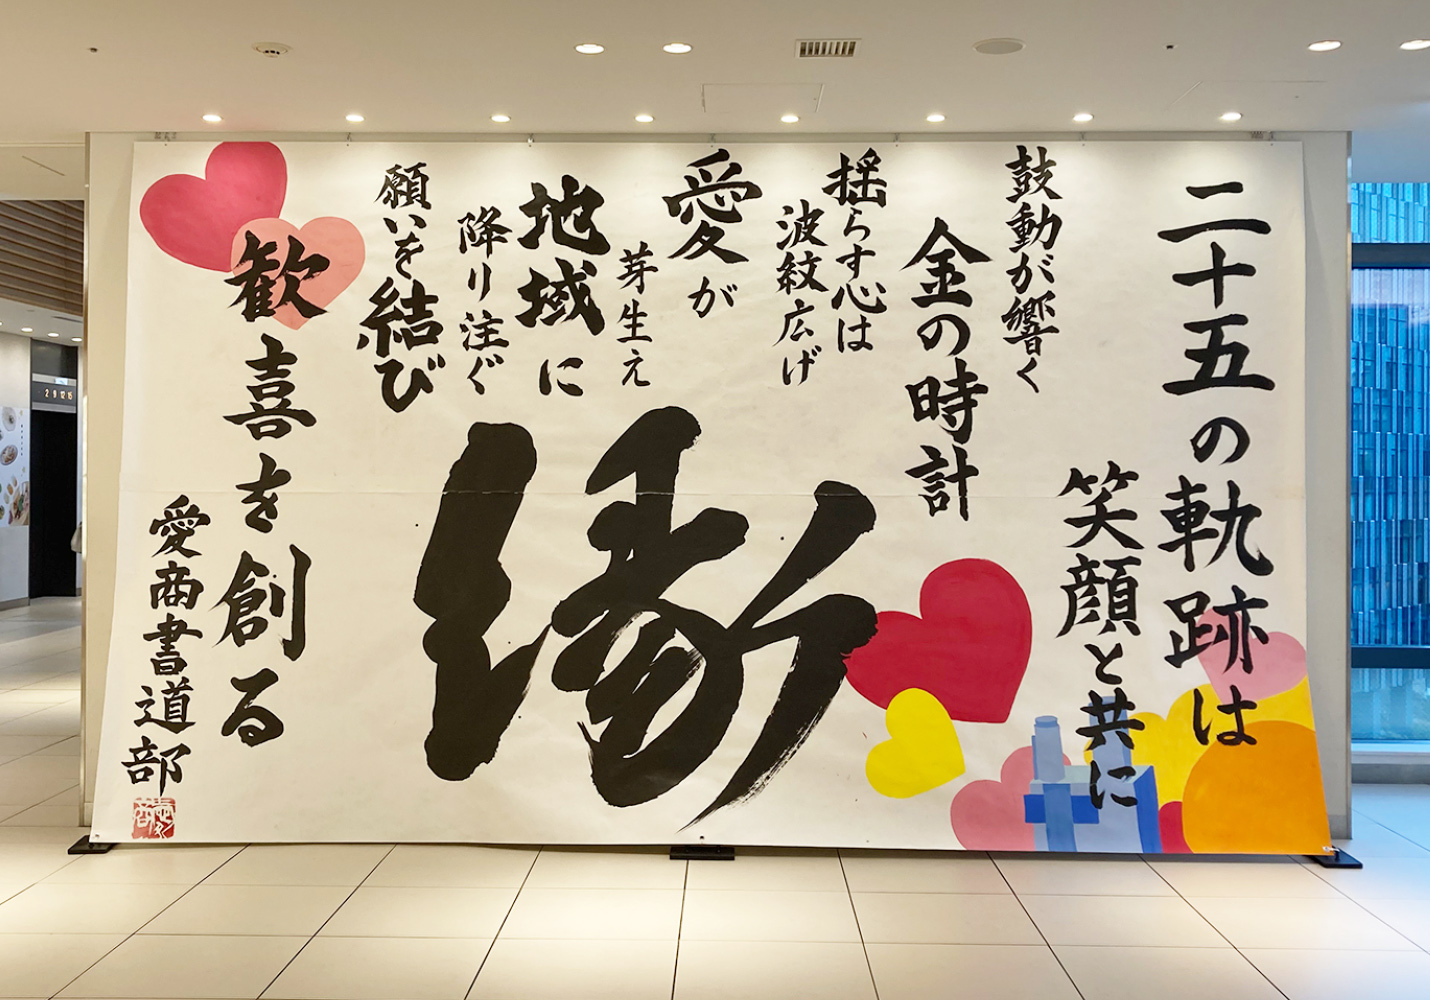 二十五の軌跡は
笑顔と共に
鼓動が響く
金の時計
揺らす心は
波紋広げ
愛が
芽生え
地域に
降り注ぐ
願いを結び
歓喜を創る
縁
愛商書道部
愛商